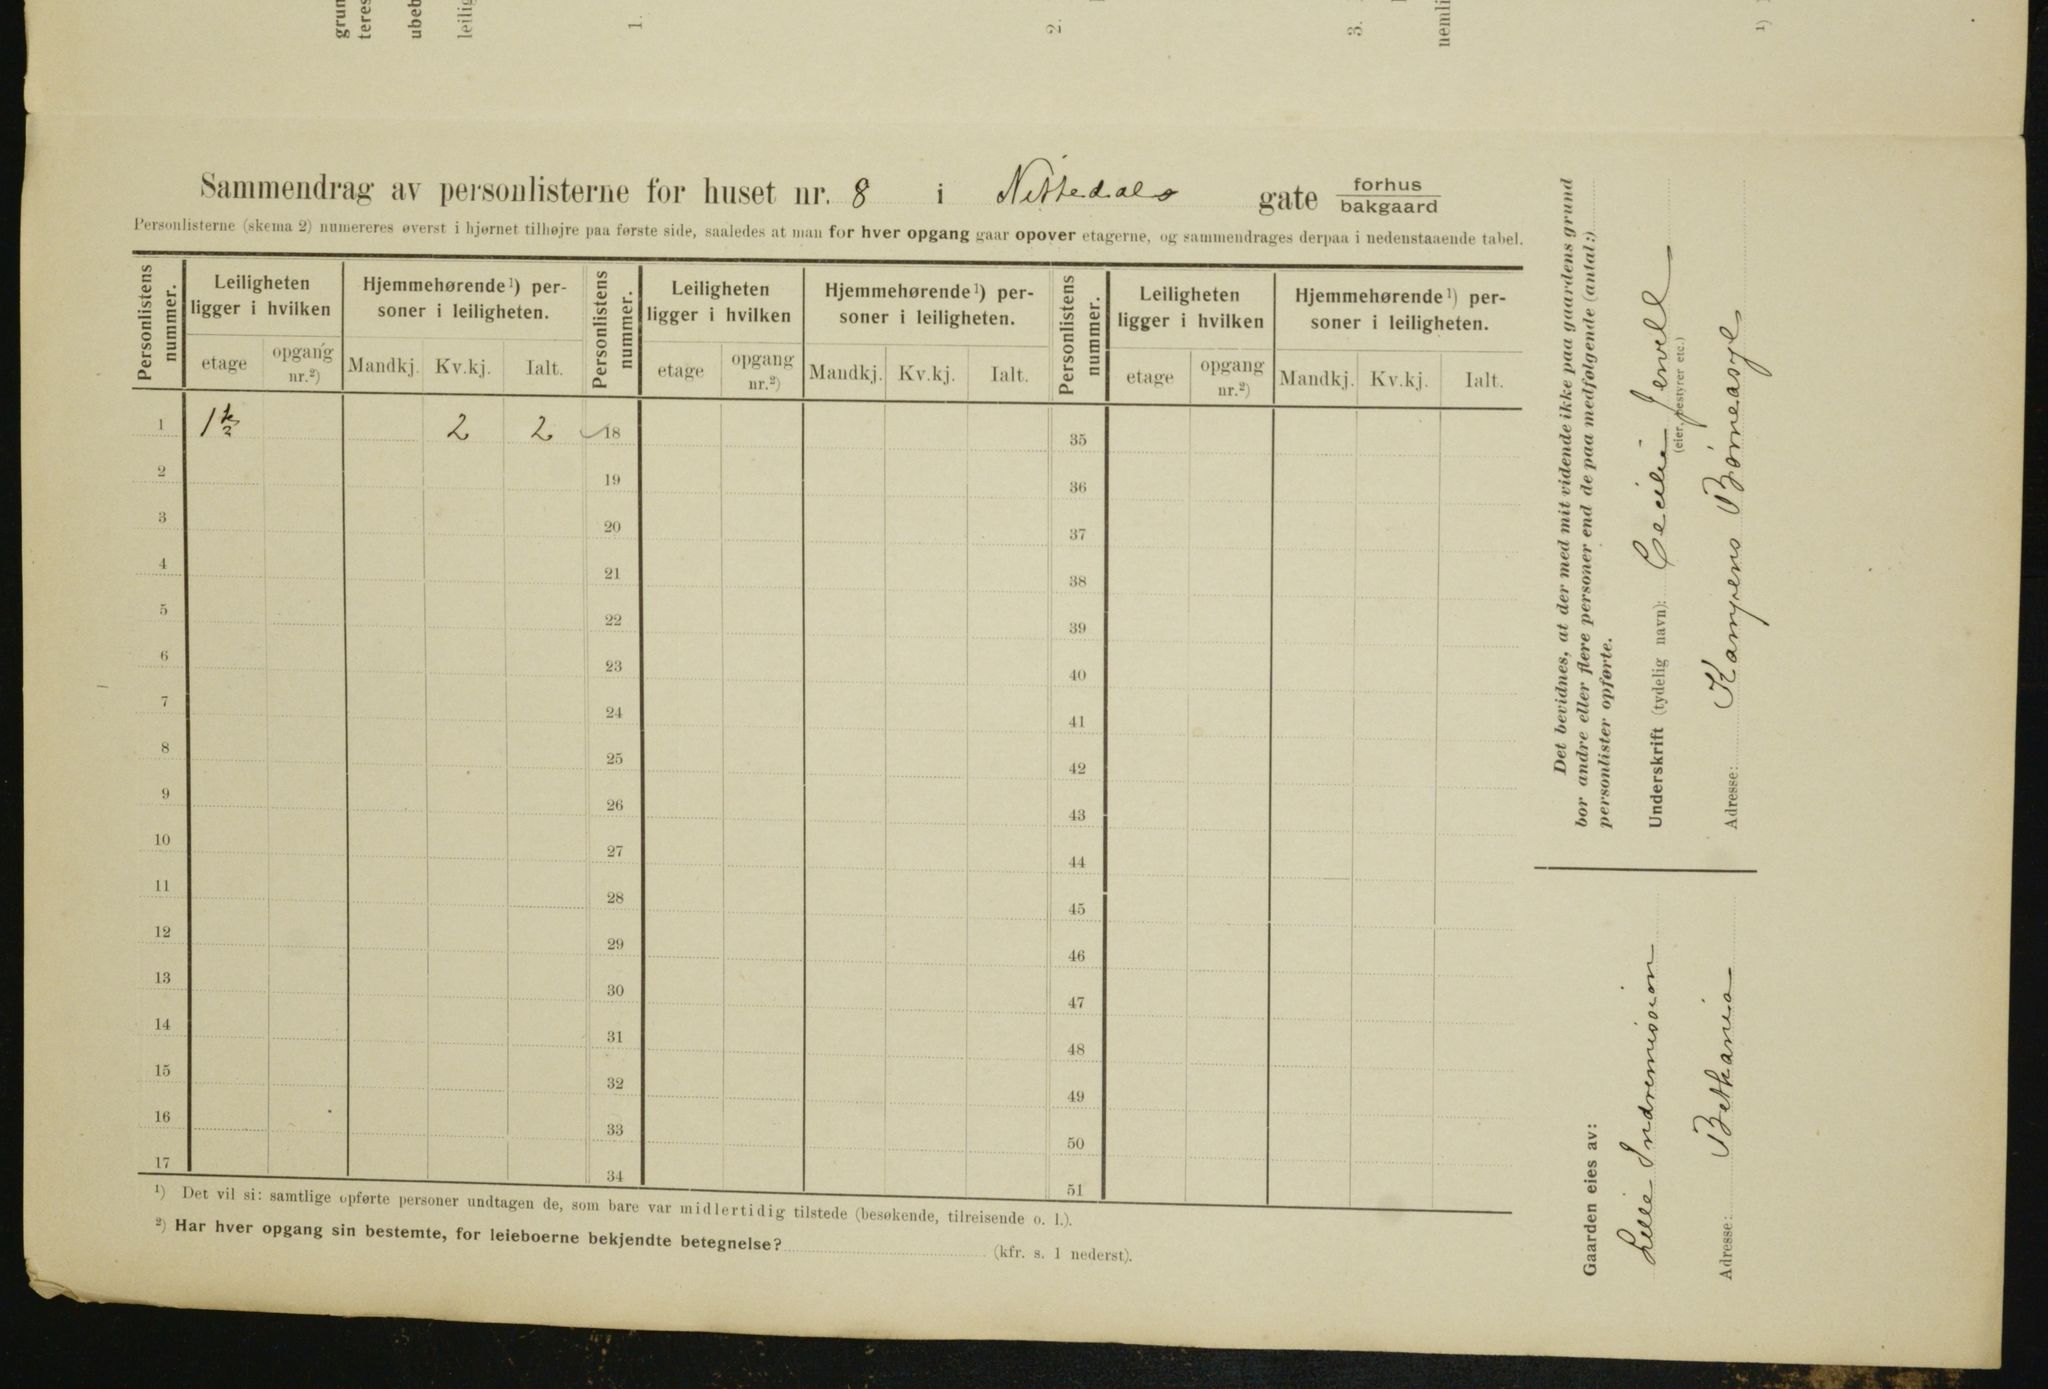 grun
teres
ubeb
leilig
1.
2.
3.
nemli
¹)
Sammendrag av personlisterne for huset nr. 8 i Nittedals gate forhus
bakgaard
Personlisterne (skema 2) numereres øverst i hjørnet tilhøjre paa første side, saaledes at man for hver opgang gaar opover etagerne, og sammendrages derpaa i nedenstaaende tabel.
Personlistens nummer. Leiligheten ligger i hvilken Hjemmehørende¹) personer i leiligheten. Personlistens nummer. Leiligheten ligger i hvilken Hjemmehørende¹) personer i leiligheten. Personlistens nummer. Leiligheten ligger i hvilken Hjemmehørende¹) personer i leiligheten.
etage opgang nr.²) Mandkj. Kv.kj. Ialt. etage opgang nr.²) Mandkj. Kv.kj. Ialt. etage opgang nr.²) Mandkj. Kv.kj. Ialt.
1 1 2 2 18 35
2 19 36
3 20 37
4 21 38
5 22 39
6 23 40
7 24 41
8 25 42
9 26 43
10 27 44
11 28 45
12 29 46
13 30 47
14 31 48
15 32 49
16 33 50
17 34 51
¹) Det vil si: samtlige opførte personer undtagen de, som bare var midlertidig tilstede (besøkende, tilreisende o. l.).
²) Har hver opgang sin bestemte, for leieboerne bekjendte betegnelse? (kfr. s. 1 nederst).
Det bevidnes, at der med mit vidende ikke paa gaardens grund
bor andre eller flere personer end de paa medfølgende (antal:)
personlister opførte.
Underskrift (tydelig navn): Cecilie Jervell
(eier, bestyrer etc.)
Adresse: Kampens Børneasyl
Gaarden eies av:
Lille Indremission
Adresse: Bethania